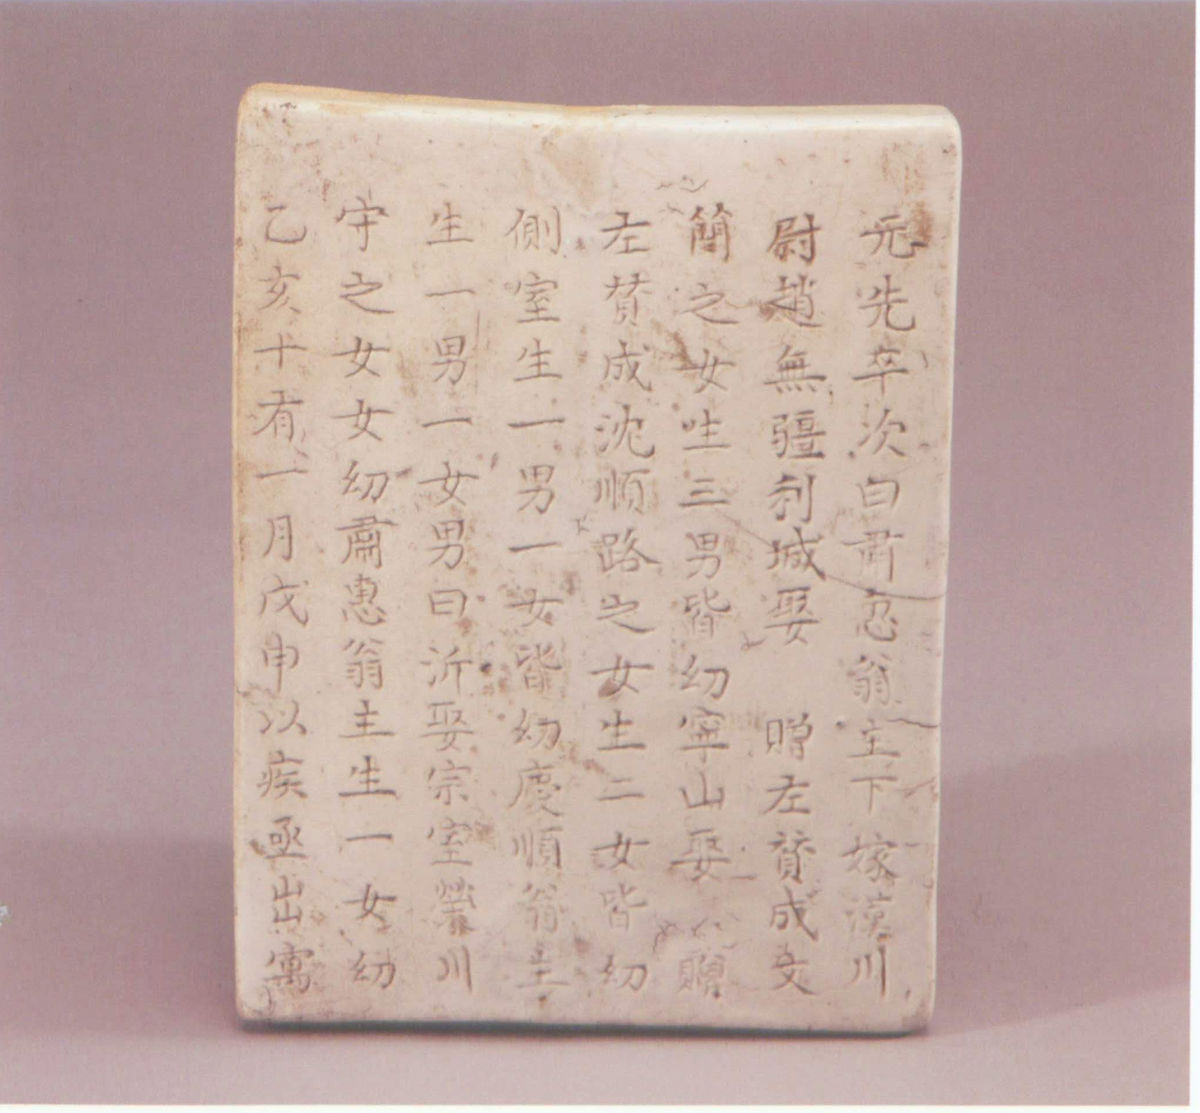 元先卒次曰肅愼翁主下嫁漢川
尉趙無疆利城娶 贈左賛成文
簡之女生三男皆幼寧山娶 贈
左賛成沈順路之女生二女皆幼
側室生一男一女皆幼慶順翁主
生一男一女男曰沂娶宗室榮川
守之女女幼肅惠翁主生一女幼
乙亥十有一月戊申以疾亟出寓